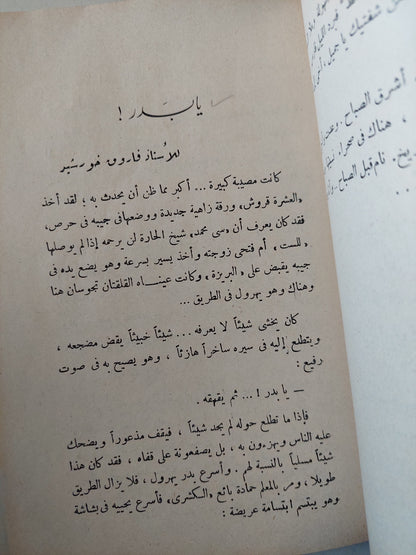 يا بدر !
للأستاذ فاروق خورشيد
كانت مصيبة كبيرة ... أكبر مما ظن أن يحدث به ؛ لقد أخذ
«العشرة قروش» ورقة زاهية جديدة ووضعها فى جيبه فى حرص،
فقد كان يعرف أن «سى محمد» شيخ الحارة لن يرحمه إذا لم يوصلها
«للست» أم فتحى زوجته وأخذ يسير بسرعة وهو يضع يده فى
جيبه يقبض على «البريزة» وكانت عيناه القلقتان تجوسان هنا
وهناك وهو يهرول فى الطريق ...
كان يخشى شيئاً لا يعرفه ... شيئاً خبيثاً يقض مضجعه ،
ويتطلع إليه فى سيره ساخراً هازئاً ، وهو يصيح به فى صوت
رفيع :
— يا بدر ! ... ثم يقهقه .
فإذا ما تطلع حوله لم يجد شيئاً ، فيقف مذعوراً ويضحك
عليه الناس ويهزءون به ، بل يصفعونة على قفاه ، فقد كان هذا
شيئاً مسلياً بالنسبة لهم . وأسرع بدر يهرول ، فلا يزال الطريق
طويلا ، ومر بالمعلم حمادة بائع «الكشرى» فأسرع يحييه فى بشاشة
وهو يبتسم ابتسامة عريضة :
شفتيك يا جميل
أشرق الصباح
هناك فى صحراء
نام قبل الصباح